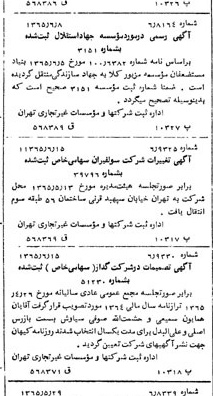 ب ۱۰۳۲۶ ف ۵۶۸۳۸۶
۱۳۶۵/۶/۸ ۶/۸۱۶۴
آگهی رسمی درمورد مؤسسه جهاد استقلال ثبت‌شده
بشماره ۳۱۵۱
براساس نامه شماره ۱۰۰/۶۳۸۲ مورخ ۱۳۶۵/۵/۱۵ بنیاد
مستضعفان مؤسسه مزبور کلا به جهاد سازندگی منتقل گردیده
است . ضمنا شماره ثبت مؤسسه ۳۱۵۱ صحیح است که
بدینوسیله تصحیح میگردد .
اداره ثبت شرکتها و مؤسسات غیرتجاری تهران
ب ۱۰۳۲۷ ف ۵۶۸۳۸۹
۱۳۶۵/۶/۱۱ ۶/۹۳۲۵
آگهی تغییرات شرکت سولفیران سهامی خاص ثبت‌شده
بشماره ۳۹۷۹۶
برابر صورتجلسه هیئت‌مدیره مورخ ۱۳۶۵/۵/۱۳ محل
شرکت به تهران خیابان سپهبد قرنی ساختمان ۵۶ طبقه سوم
انتقال یافت .
اداره ثبت شرکتها و مؤسسات غیرتجاری تهران
ب ۱۰۳۱۷ ف ۵۶۸۳۶۹
۱۳۶۵/۶/۱۵ ۶/۹۳۳۰
آگهی تصمیمات در شرکت گداز( سهامی خاص ) ثبت‌شده
بشماره ۵۱۲۳۰
برابر صورتجلسه مجمع عمومی عادی سالیانه مورخ ۲۶/۴
۱۳۶۵ ترازنامه سال مالی ۱۳۶۴ مورد تصویب قرار گرفت آقایان
همایون سمیعی و حشمت‌الله صوفی سیاوش بسمت بازرس
اصلی و علی‌البدل برای مدت یکسال انتخاب شدند روزنامه کیهان
جهت نشر آگهیهای شرکت تعیین گردید .
اداره ثبت شرکتها و مؤسسات غیرتجاری تهران
ب ۱۰۳۱۸ ف ۵۶۸۳۷۱
۱۳۶۵/۵/۲۹ ۶/۸۳۳۹